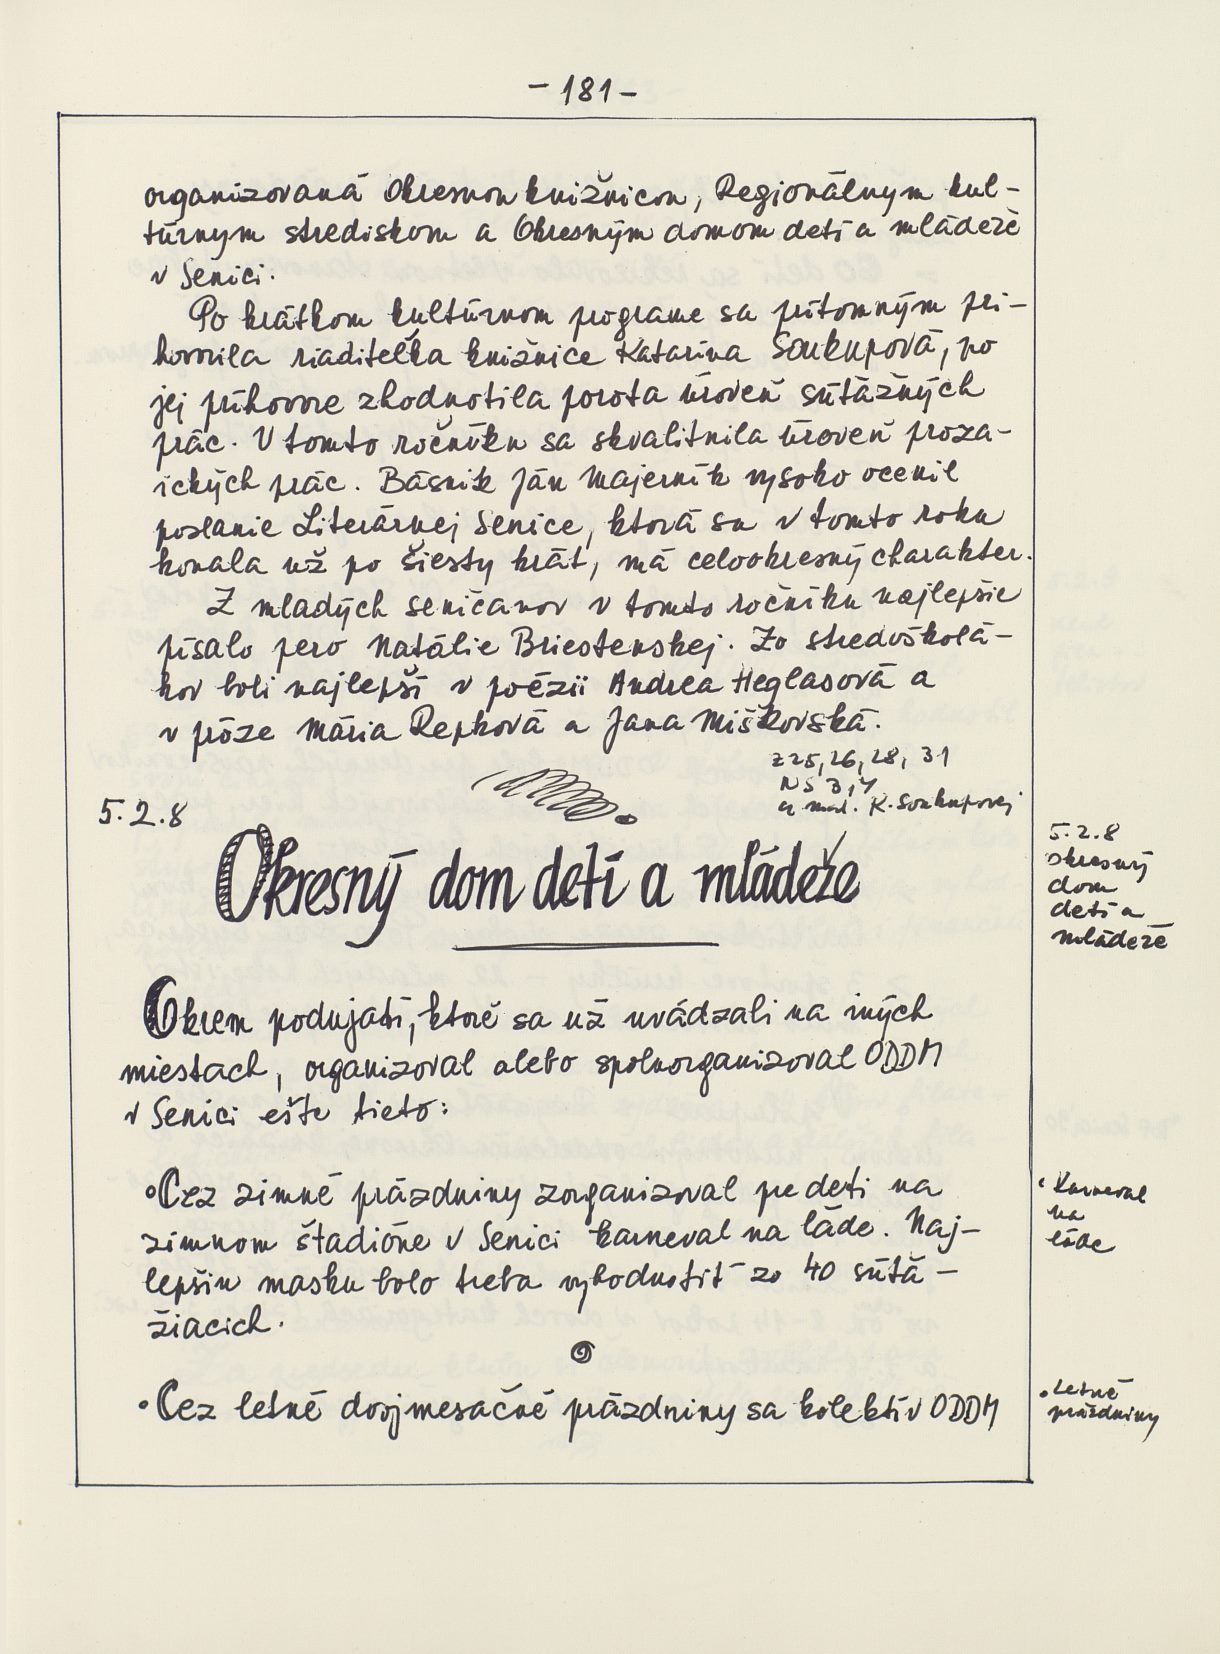 - 181 -
organizovaná Okresnou knižnicou, Regionálnym kul-
túrnym strediskom a Okresným domom detí a mládeže
v Senici.
Po krátkom kultúrnom programe sa prítomným pri-
hovorila riaditeľka knižnice Katarína Soukupová, po
jej príhovore zhodnotila porota úroveň súťažných
prác. V tomto ročníku sa skvalitnila úroveň proza-
ických prác. Básnik Ján Majerník vysoko ocenil
poslanie Literárnej Senice, ktorá sa v tomto roku
konala už po šiesty krát, má celookresný charakter.
Z mladých seničanov v tomto ročníku najlepšie
písalo pero Natálie Briestenskej. Zo stredoškolá-
kov boli najlepší v poézii Andrea Heglasová a
v próze Mária Repková a Jana Miškovská.
Z 25, 26, 28, 31
NS 3, 4
a mat. K. Soukupovej
5.2.8
Okresný dom detí a mládeže
5.2.8
Okresný
dom
detí a
mládeže
Okrem podujatí, ktoré sa už uvádzali na iných
miestach, organizoval alebo spoluorganizoval ODDM
v Senici ešte tieto:
• Cez zimné prázdniny zorganizoval pre deti na
zimnom štadióne v Senici karneval na ľade. Naj-
lepšiu masku bolo treba vyhodnotiť zo 40 súťa-
žiacich.
• Karneval
na
ľade
• Cez letné dvojmesačné prázdniny sa kolektív ODDM
• Letné
prázdniny